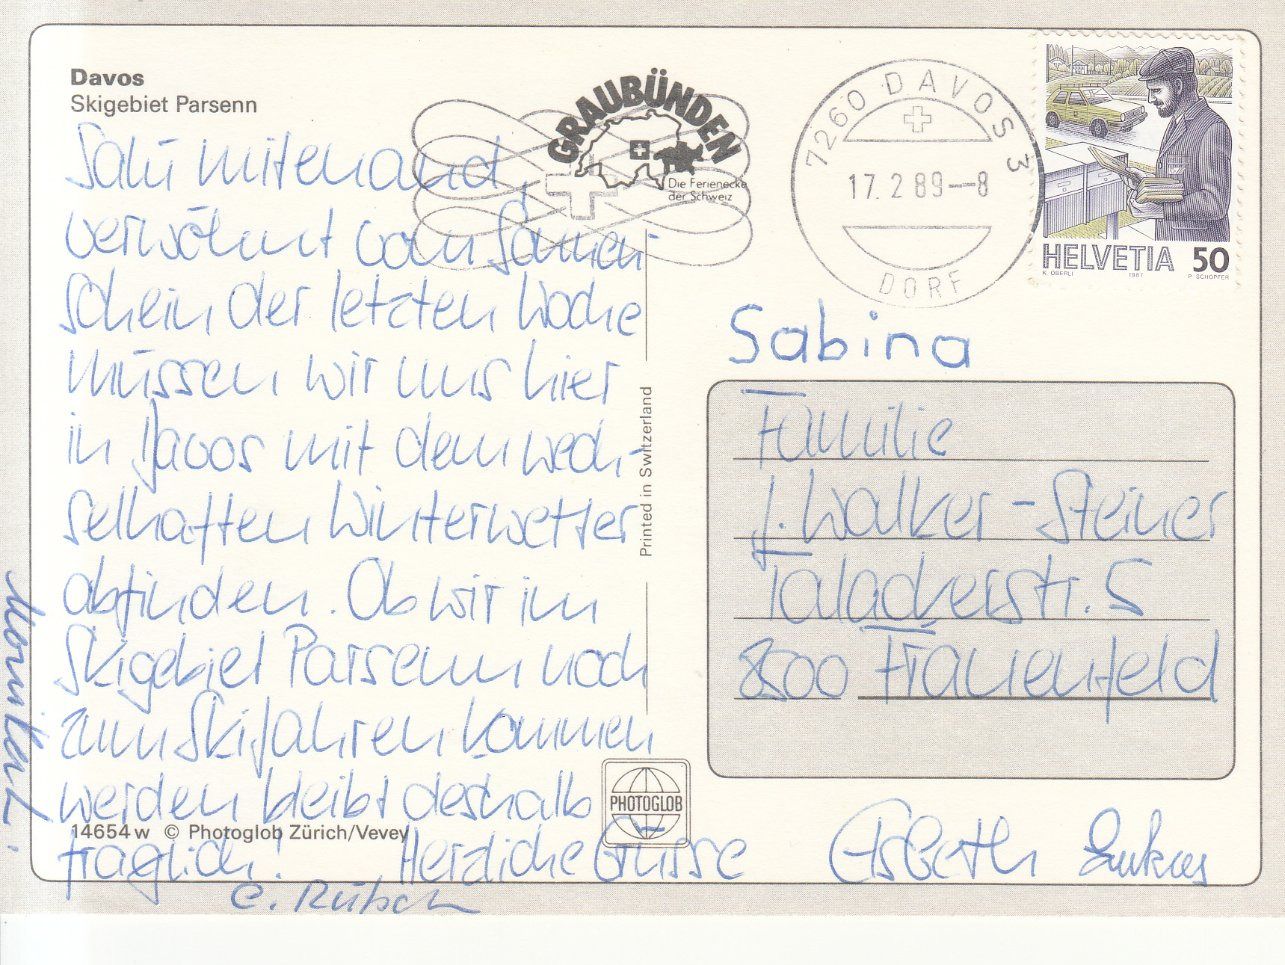 Davos
Skigebiet Parsenn
Salü mitenand,
verwöhnt vom Sonnen-
schein der letzten Woche
müssen wir uns hier
in Davos mit dem wech-
selhaften Winterwetter
abfinden. Ob wir im
Skigebiet Parsenn noch
zum Skifahren kommen
werden bleibt deshalb
fraglich! Herzliche Grüsse
Elsbeth Lukas
C. Rütsch
14654 w © Photoglob Zürich/Vevey
PHOTOGLOB
Printed in Switzerland
GRAUBÜNDEN
Die Ferienecke
der Schweiz
7260 DAVOS 3
17.2 89--8
DORF
HELVETIA 50
K. OBERLI 1987 P. SCHOPFER
Sabina
Familie
J. Walker-Steiner
Talackerstr. 5
8500 Frauenfeld